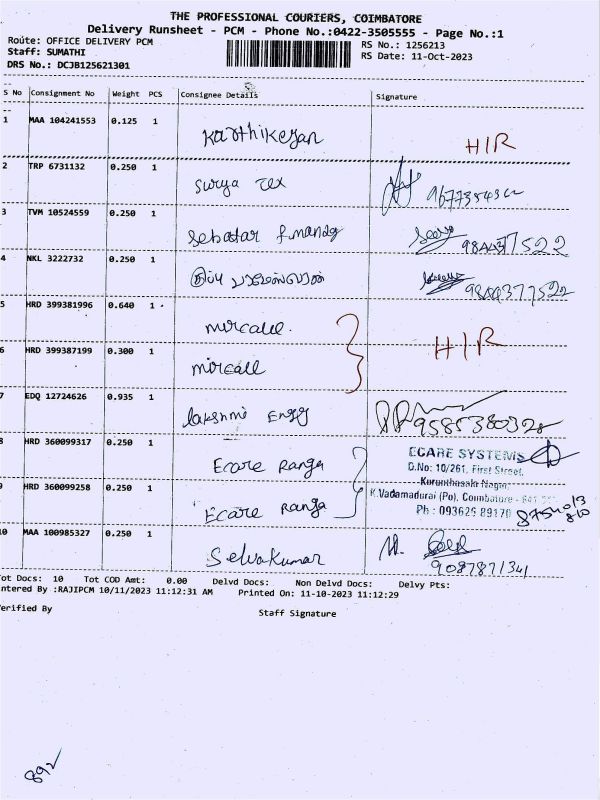 THE PROFESSIONAL COURIERS, COIMBATORE
Delivery Runsheet - PCM - Phone No.:0422-3505555 - Page No.:1
Route: OFFICE DELIVERY PCM
RS No.: 1256213
Staff: SUMATHI
RS Date: 11-Oct-2023
DRS No.: DCJB125621301
S No Consignment No Weight PCS Consignee Details Signature
1 MAA 104241553 0.125 1 Karthikeyan HIR
2 TRP 6731132 0.250 1 Surya Tex
3 TVM 10524559 0.250 1 9844377522
4 NKL 3222732 0.250 1 9844377522
5 HRD 399381996 0.640 1 mircale.
HIR
6 HRD 399387199 0.300 1 mircall
7 EDQ 12724626 0.935 1 lakshmi Engg 9585380328
8 HRD 360099317 0.250 1 Ecare Ranga
ECARE SYSTEMS
D.No: 10/261, First Street,
Kurunthasala Nagar,
9 HRD 360099258 0.250 1 Ecare Ranga
K.Vadamadurai (Po). Coimbatore - 641
Ph : 093626 89170
10 MAA 100985327 0.250 1 Selvakumar
9087871341
Tot Docs: 10 Tot COD Amt: 0.00 Delvd Docs: Non Delvd Docs: Delvy Pts:
ntered By :RAJIPCM 10/11/2023 11:12:31 AM Printed On: 11-10-2023 11:12:29
erified By Staff Signature
892